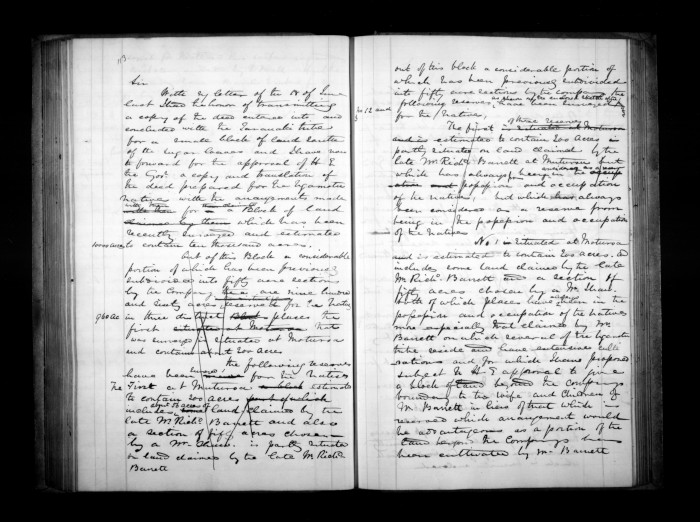 Sir
With my letter of the 18 of June
last I had the honor of transmitting
a copy of the deed entered into and
concluded with the Taranaki tribe
for a small block of land
of the Sugar Loaves and I have now
to forward for the approval of H E
the Govr a copy and translation of
the deed prepared for the Ngamotu
Natives with the arrangements made
with them for a Block of Land
claimed by them which has been
recently surveyed and estimated
10000 acres to contain ten thousand acres.
Out of this Block a considerable
portion of which has been previously
subdivided into fifty acre sections
by the Company there are nine hundred
and sixty acres for the Natives
960 ac in three places the
first situated at Moturoa that
was surveyed is situated at Moturoa
and contains about 200 acres
the following reserves
have been for the Natives
The First at Moturoa estimated
to contain 200 acres part of which
includes some land claimed by the
late Mr Richd Barrett and also
a section of fifty acres chosen
by a Mr is partly situated
on land claimed by the late Mr Richd
Barrett
out of this block a considerable portion of
which has been previously subdivided
into fifty acre sections by the company the
following reserves, have been
No. 1 2 and 3 for the Natives,
The first of these reserves is situated at Moturoa
and is estimated to contain 200 acres is
partly situated on land claimed by the
late Mr Richd Barrett at Moturoa but
which has always been in the
possession and occupation
of the natives, but which has always
been considered as a reserve from
being in the possession and occupation
of the Natives
No 1 is situated at Moturoa
and is estimated to contain 200 acres. It
includes some land claimed by the late
Mr Richd Barrett and a section of
fifty acres chosen by a Mr
both of which places have been in the
possession and occupation of the natives
more especially that claimed by Mr
Barrett on which several of the Ngamotu
tribe reside and have extensive cultivations
and for which I have proposed
subject to H E approval to give
a block of land beyond the Companys
boundary to the wife and children of
Mr Barrett in lieu of that which is
reserved which arrangement would
be advantageous as a portion of the
land beyond the Companys has
been cultivated by Mr Barrett